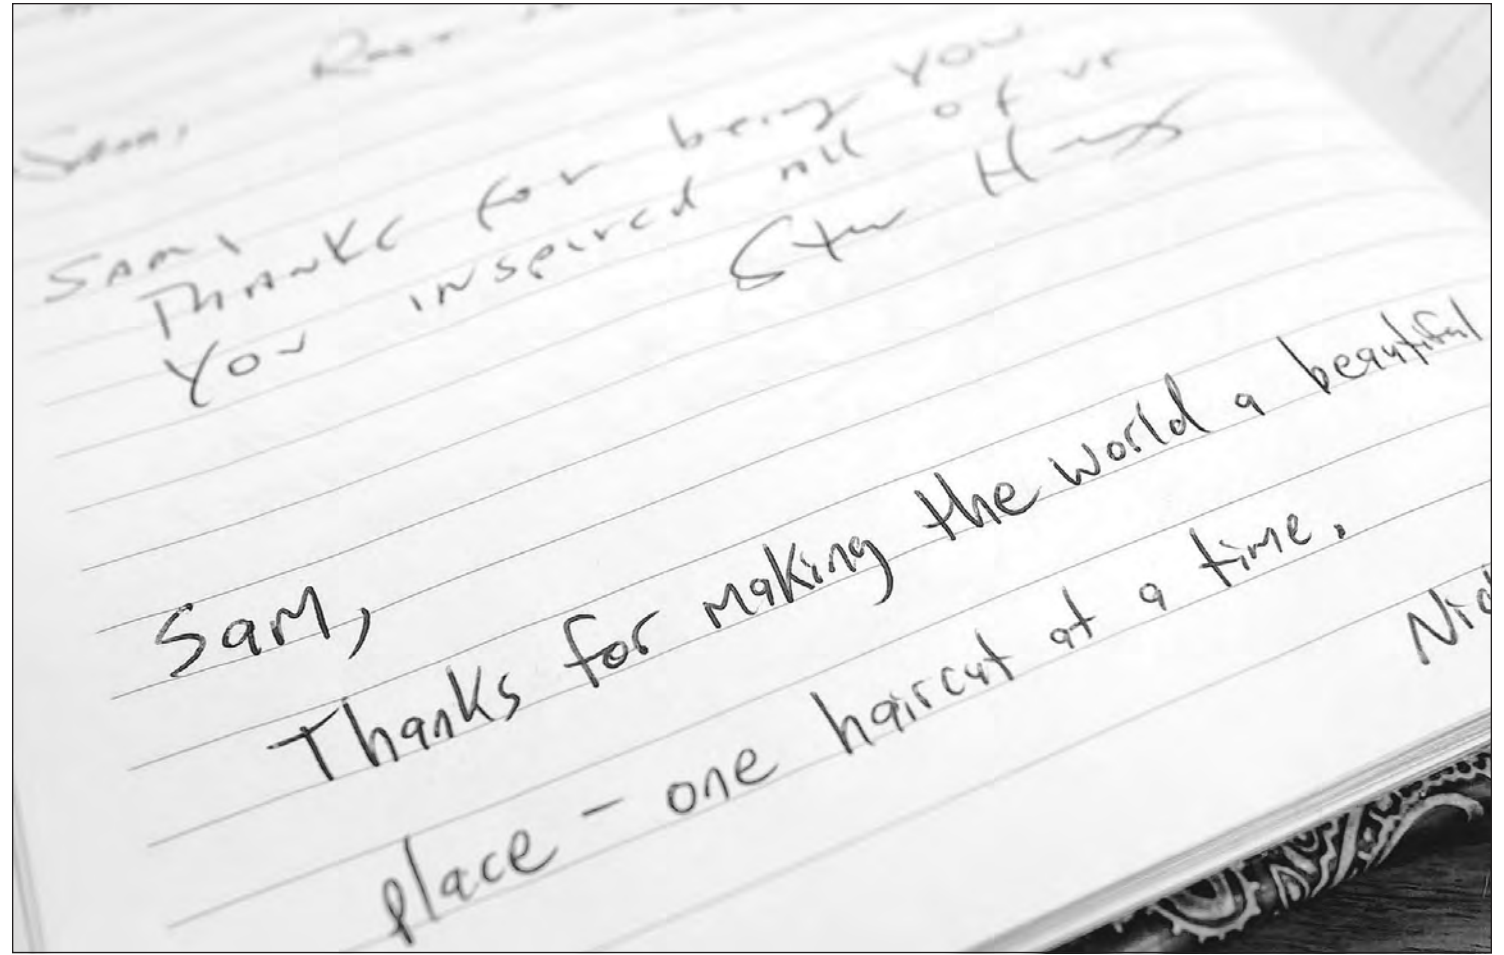 Sam,
Thanks for being you
You inspired all of us
Sam,
Thanks for making the world a beautiful
place - one haircut at a time.